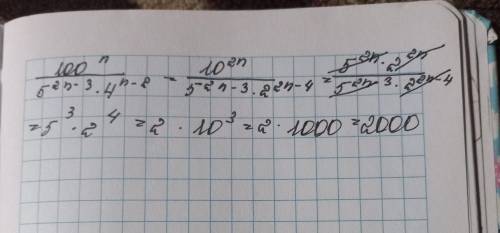 100^n / (5^(2n-3) · 4^(n-2)) = 10^(2n) / (5^(2n-3) · 2^(2n-4)) = 5^(2n) · 2^(2n) / (5^(2n-3) · 2^(2n-4))
= 5^3 · 2^4 = 2 · 10^3 = 2 · 1000 = 2000